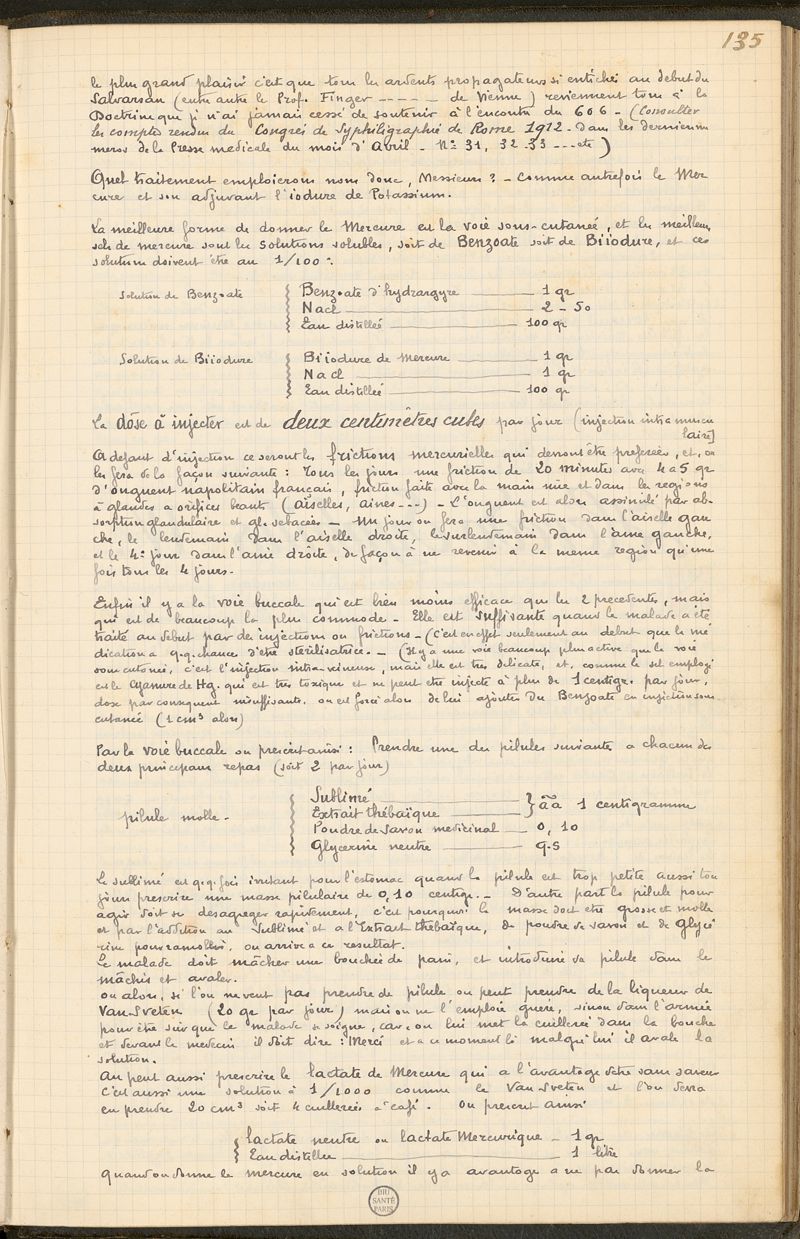 135
le plus grand plaisir c'est que tous les ardents propagateurs si entichés au debut du
Salvarsan (entre autre le Prof. Finger ----- de Vienne) reviennent tous à la
Doctrine que je n'ai jamais cessé de soutenir à l'encontre du 606 - (Consulter
les comptes rendus du Congrés de Syphiligraphie de Rome 1912 - Dans les derniers nu
meros de la Presse medicale du mois d'Avril - Nos 31, 32-33 --- etc)
Quel traitement emploierons nous donc, Messieurs? - Comme autrefois le Mer
cure et son adjuvant l'iodure de Potassium.
La meilleure forme de donner le Mercure est la voie sous-cutanée, et les meilleurs
sels de mercure sont les solutions solubles, soit de Benzoate soit de Biiodure, et ces
solutions doivent être au 1/100e.
Solution de Benzoate { Benzoate d'hydrargyre ——— 1 gr
Nacl ——— 2 - 50
Eau distillée ——— 100 gr
Solution de Biiodure { Biiodure de mercure ——— 1 gr
Nacl ——— 1 gr
Eau distillée ——— 100 gr
La dôse à injecter est de deux centimètres cubes par jour (injection intra muscu
laire)
A defaut d'injection ce seront les frictions mercurielles qui devront être preferées, et, on
les fera de la façon suivante : Tous les jours une friction de 20 minutes avec 4 a 5 gr
d'onguent napolitain français, friction faite avec la main nue et dans les regions
à glandes a orifices beants (aiselles, aines ---) - L'onguent est alors assimilé par ab
sorption glandulaire et gl. sebacées - Un jour on fera une friction dans l'aiselle gau
che, le lendemain dans l'aiselle droite, le surlendemain dans l'aine gauche,
et le 4e jour dans l'aine droite, de façon à ne revenir à la meme region qu'une
fois tous les 4 jours.
Enfin il y a la voie buccale qui est bien moins efficace que les 2 precedentes, mais
qui est de beaucoup la plus commode - Elle est suffisante quand le malade a été
traité au debut par des injections ou frictions - (c'est en effet seulement au debut que la mé
dication a q.q. chance d'etre sterilisatrice. - (Il y a une voie beaucoup plus active que la voie
sous cutanée, c'est l'injection intra-veineuse, mais elle est tres délicate, et, comme le sel employé
est le Cyanure de Hg. qui est tres toxique et ne peut etre injecté à plus de 1 centigr. par jour,
dose par consequent insuffisante. on est forcé alors de lui ajouter du Benzoate en injection sous
cutanée (1 cm3 alors)
Par la voie buccale on prescrit ainsi : Prendre une des pilules suivantes a chacun des
deux principaux repas (soit 2 par jour)
pilule molle - { Sublimé ———
Extrait thébaïque ——— } ãã 1 centigramme
Poudre de savon medicinal — 0,10
Glycerine neutre — q.s
Le sublimé est q.q. fois irritant pour l'estomac quand la pilule est trop petite aussi tou
jours prescrire une masse pilulaire de 0,10 centigr. - D'autre part la pilule pour
agir doit se desagreger rapidement, c'est pourquoi la masse doit etre grosse et molle
et par l'addition au Sublimé et a l'Extrait thébaïque, de poudre de savon et de Glycé
rine pour ramollir, on arrive a ce resultat.
Le malade doit mâcher une bouchée de pain, et introduire sa pilule dans le
mâchis et avaler.
ou alors, si l'on ne veut pas prendre de pilule on peut prendre de la liqueur de
Van Sveten (20 gr par jour) mais on ne l'emploie guère, sinon dans l'armée
pour être sûr que le malade se soigne, car, on lui met la cuillerée dans la bouche
et devant le medecin il doit dire : Merci et a ce moment là malgré lui il avale la
solution.
On peut aussi prescrire le lactate de Mercure qui a l'avantage d'etre sans saveur
C'est aussi une solution à 1/1000 comme le Van Sveten et l'on devra
en prendre 20 cm3 soit 4 cuillerées à café. On prescrit ainsi
{ lactate neutre ou lactate Mercurique - 1 gr
Eau distillée ——— 1 litre
Quand on donne le mercure en solution il y a avantage a ne pas donner la
BIU
SANTÉ
PARIS